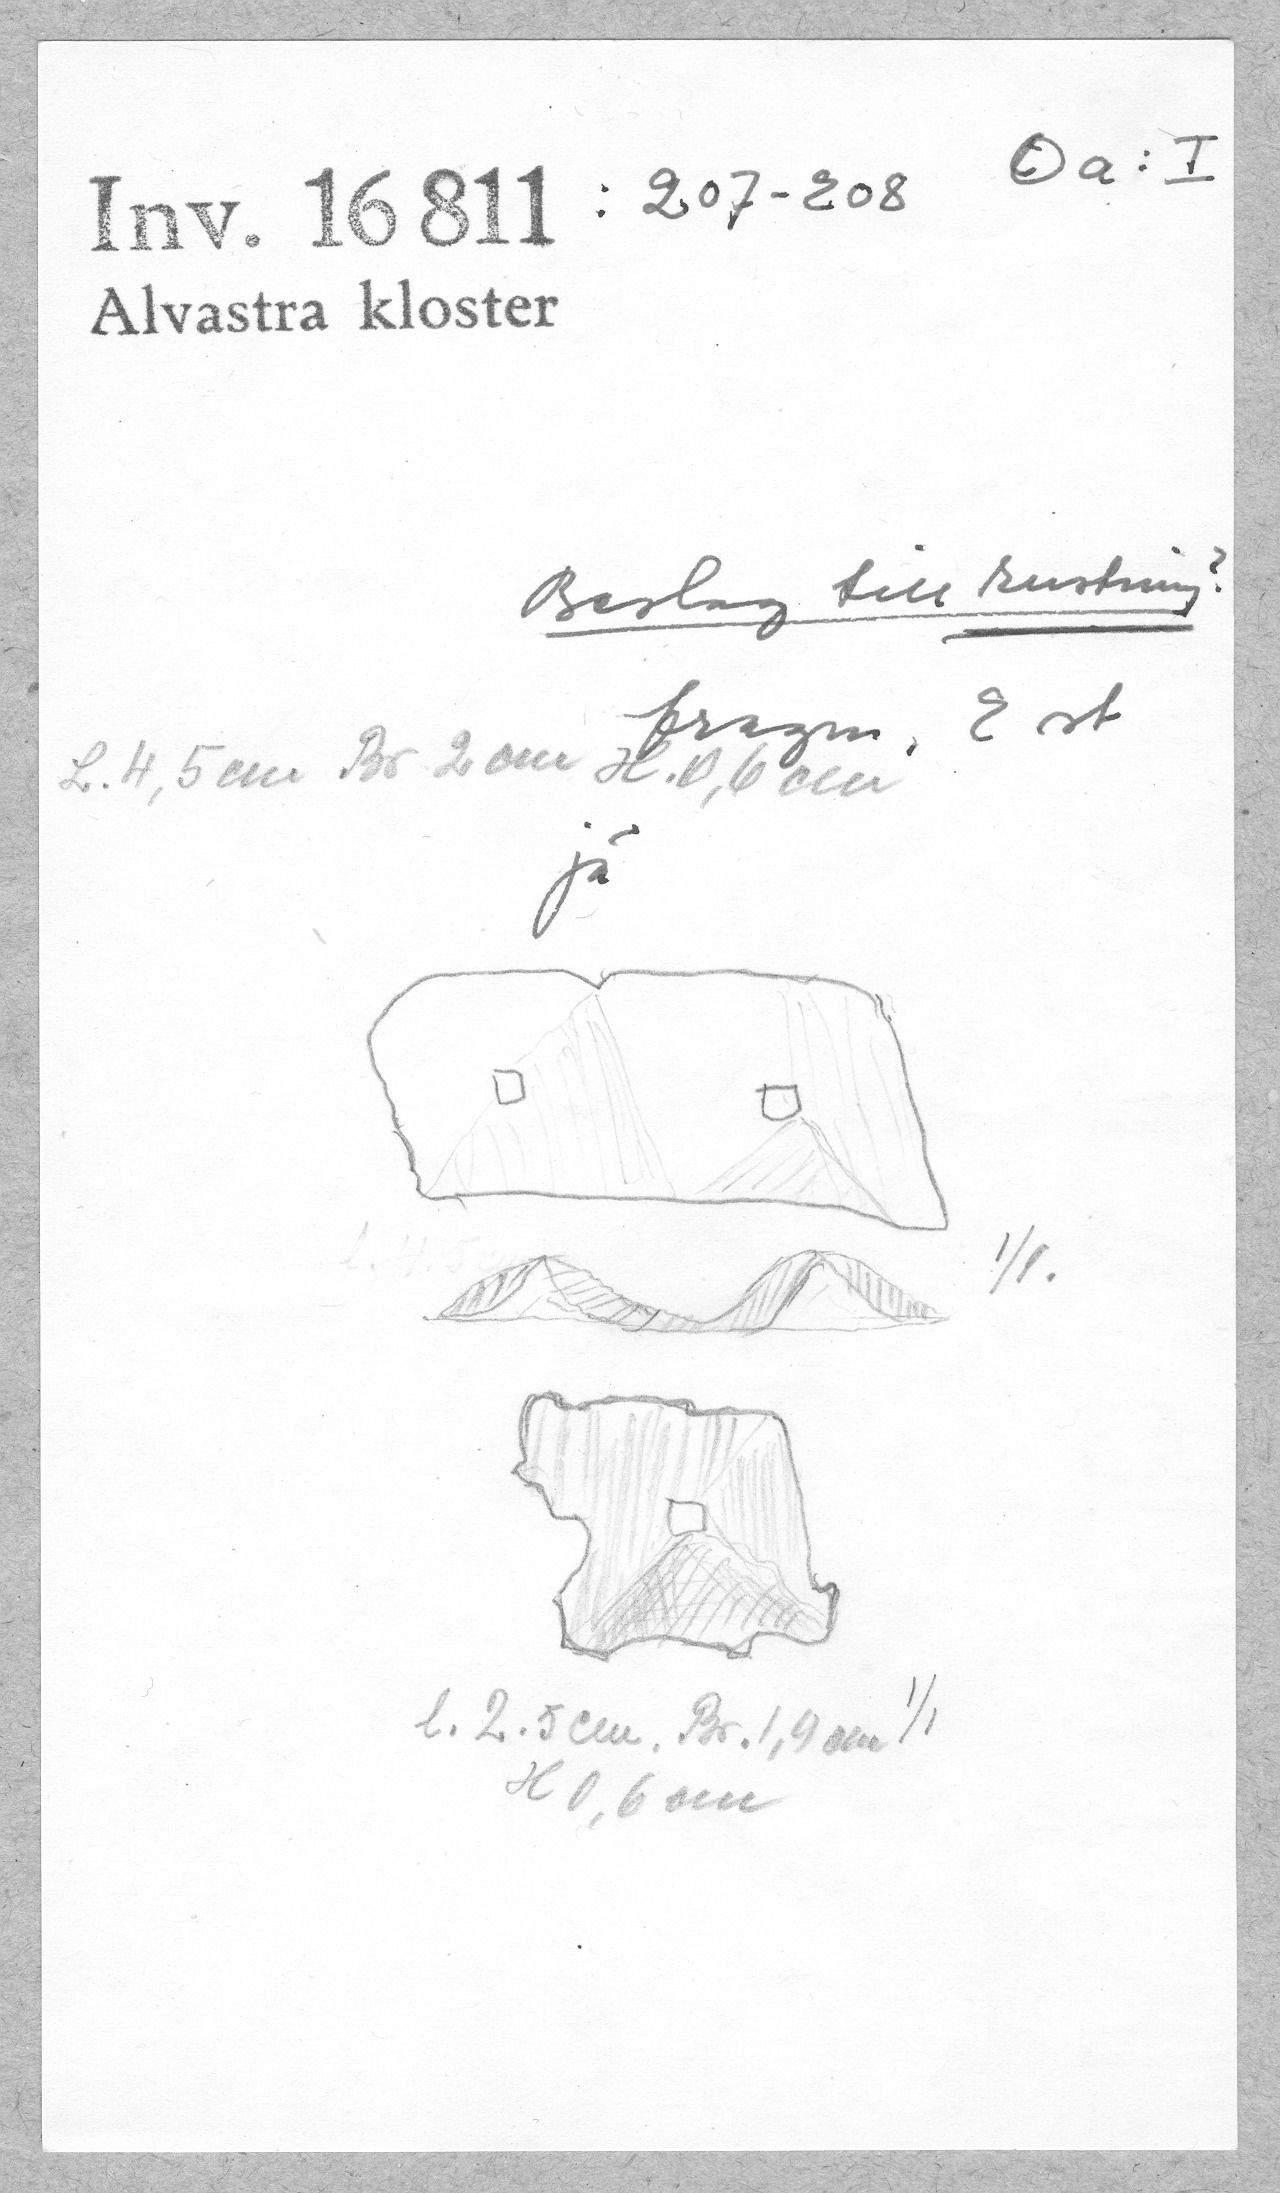 Inv. 16 811 : 207-208
a : I
Alvastra kloster
Beslag till rustning?
fragm. 2 st
L. 4,5 cm Br 2 cm H. 0,6 cm
jä
l. 4.5 c
1/1.
l. 2.5 cm. Br. 1,9 cm 1/1
H 0,6 cm